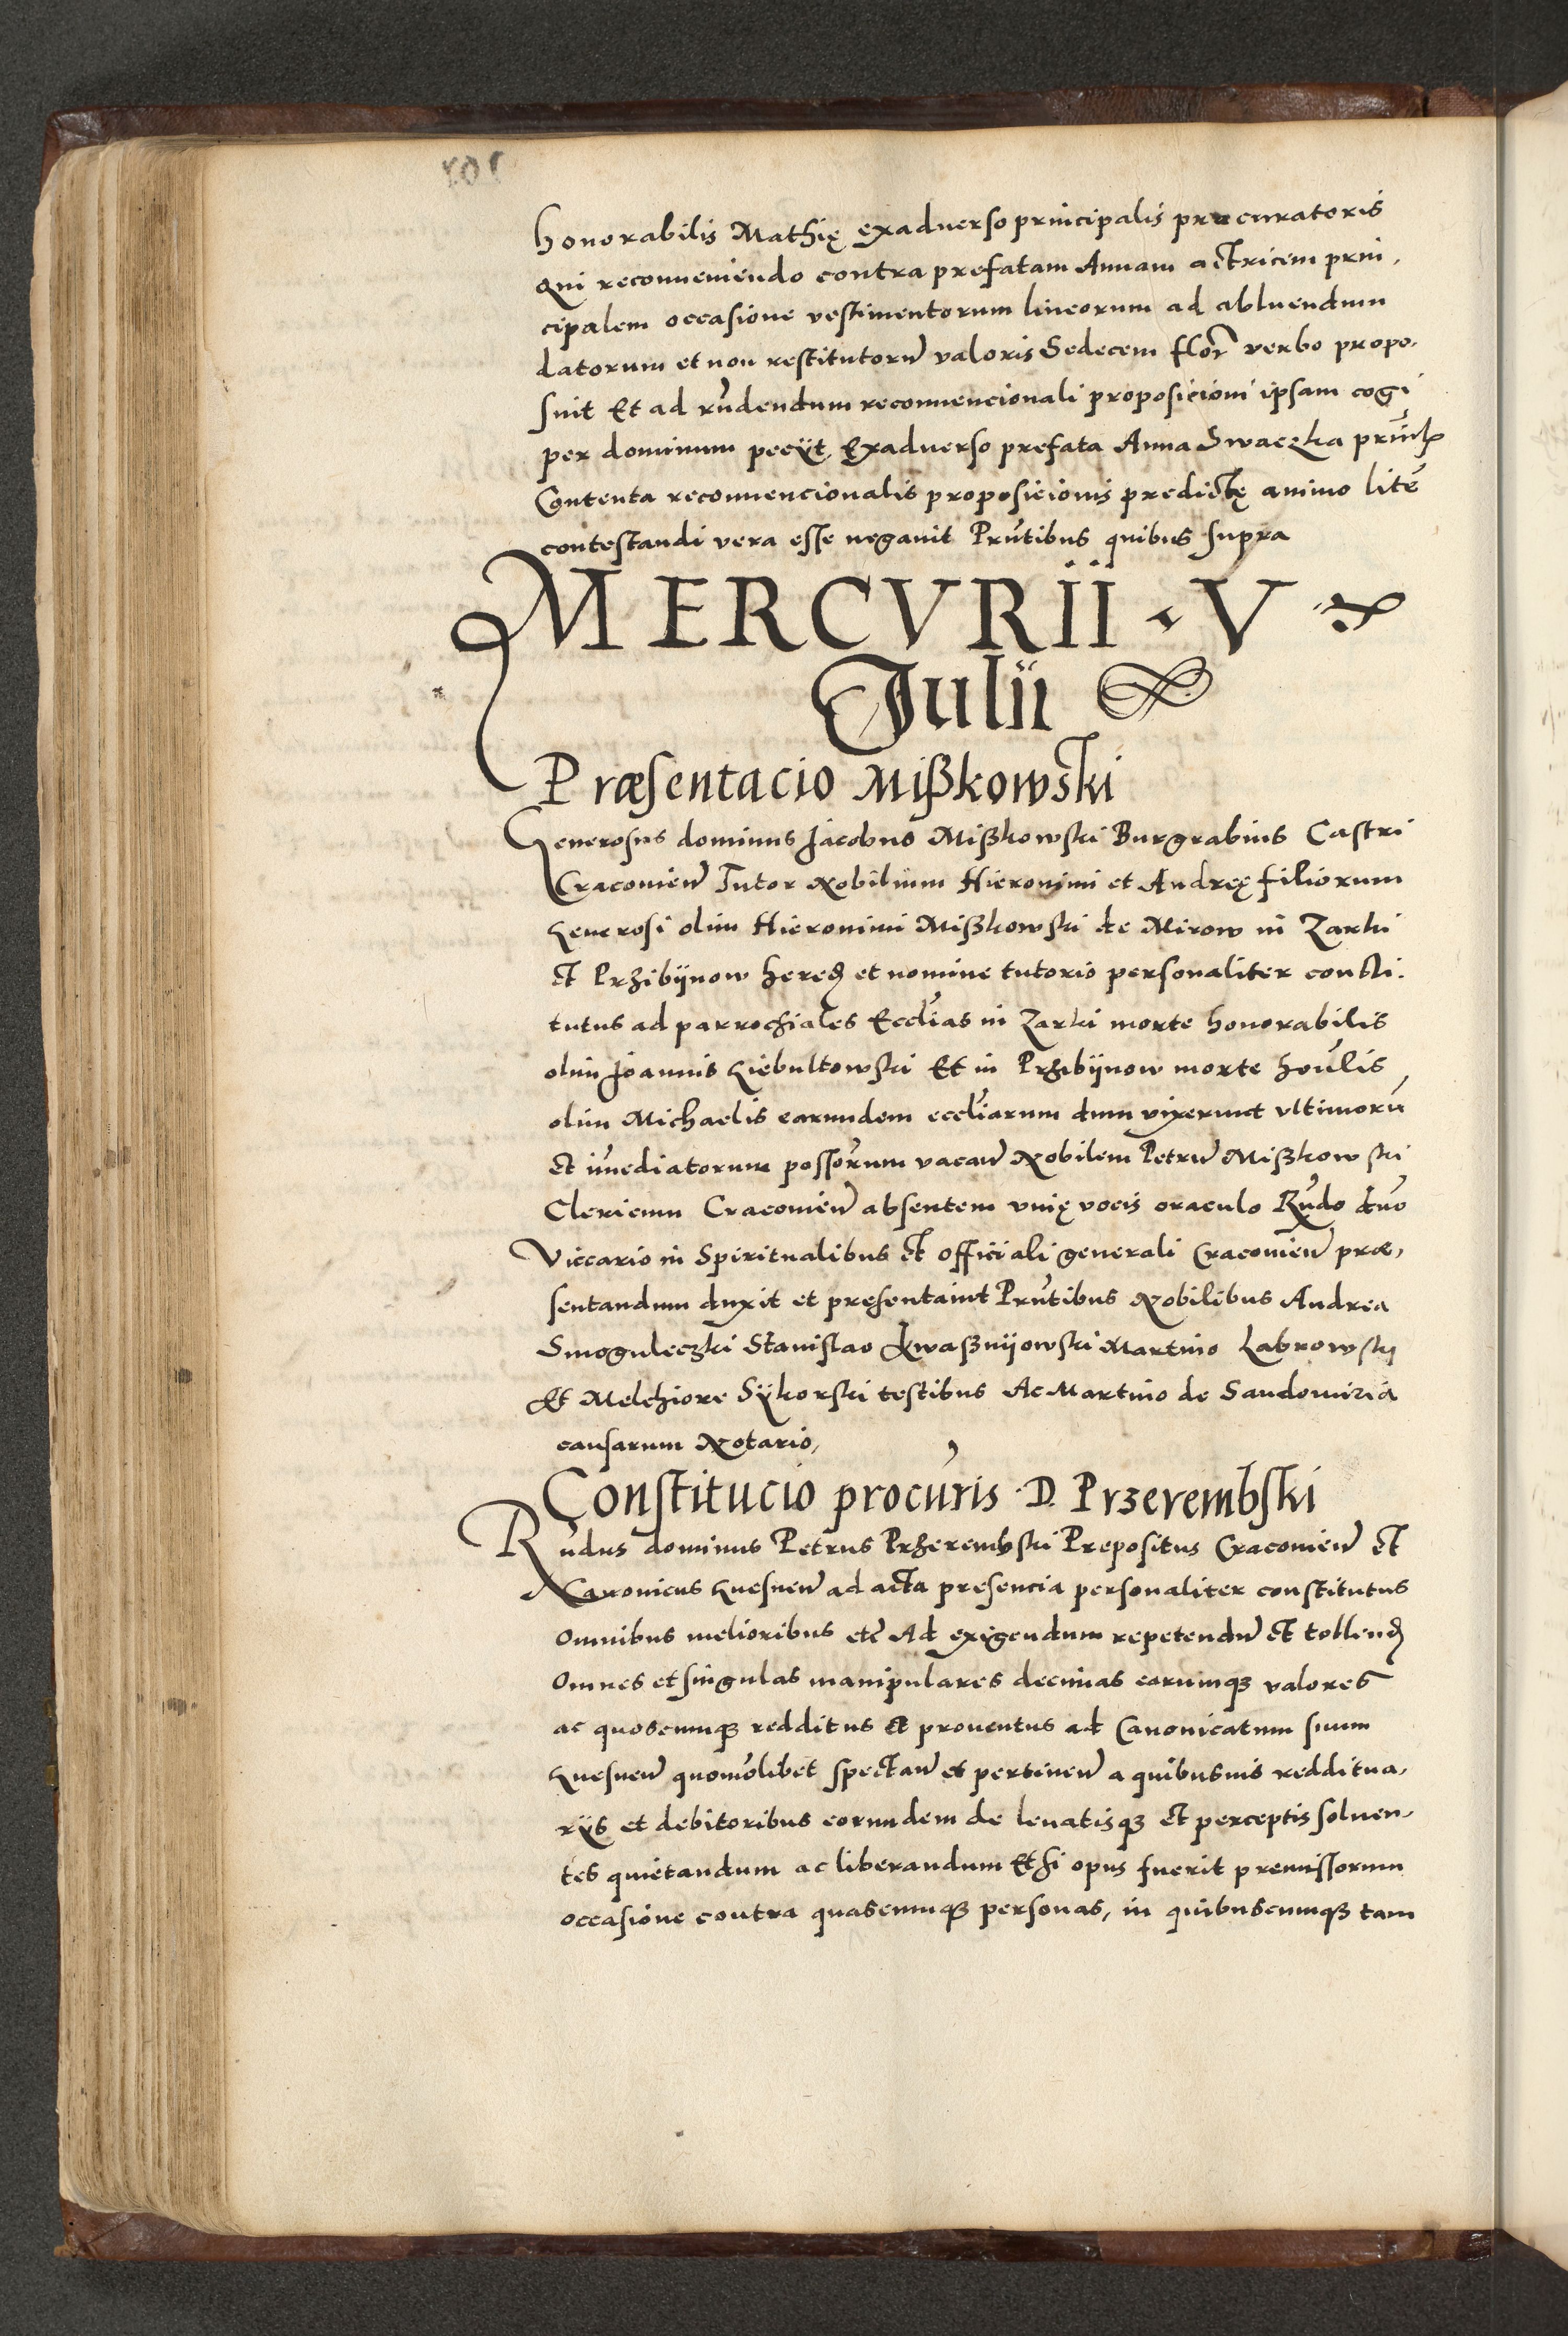 honorabilis Mathię exaduerso principalis procuratoris
Qui reconueniendo contra prefatam Annam actricem prin,
cipalem occasione vestimentorum lineorum ad abluendum
datorum et non restitutorũ valoris Sedecem flor̃ verbo propo,
suit Et ad rñdendum reconuencionali proposicioni ipsam cogi
per dominum peciit, Exaduerso prefata Anna Swaczka
Contenta reconuencionalis proposicionis predictę animo litẽ
contestandi vera esse negauit Prñtibus quibus supra
MERCVRII · V
Julii
Præsentacio Mißkowski
Generosus dominus Jacobus Mißkowski Burgrabius Castri
Cracouieñ Tutor Nobilium Hieronimi et Andreę filiorum
Generosi olim Hieronimi Mißkowski de Mirow in Zarki
et Przibijnow hered et nomine tutorio personaliter consti.
tutus ad parrochiales Eccl̃ias in Zarki morte honorabilis
olim Joannis Giebultowski Et in Przibijnow morte hoñlis
olim Michaelis earundem eccl̃iarum dum vixerunt vltimorũ
et im̃ediatorum possor̃um vacañ Nobilem Petrũ Mißkowski
Clericum Cracouieñ absentem vnię vocis oraculo Rñdo dño
Viccario in Spiritualibus et officiali generali Cracouieñ præ,
sentandum duxit et presentauit Prñtibus Nobilibus Andrea
Smoguleczki Stanislao Kwaßnijowski Martino Labrowskj
Et Melchiore Sÿkorski testibus Ac Martino de Sandomiria
causarum Notario,
Constitucio procũris · D. Przerembski
Rñdus dominus Petrus Przerembski Prepositus Cracouieñ et
Canonicus Gnesneñ ad acta presencia personaliter constitutus
Omnibus melioribus etc̃ Ad exigendum repetendũ et tollend
Omnes et singulas manipulares decimas earumqꝫ valores
ac quoscumqꝫ redditus et prouentus ad Canonicatum suum
Gnesneñ quomõlibet spectañ et pertineñ a quibusuis redditua,
rijs et debitoribus eorundem de leuatisqꝫ et perceptis soluen,
tes quietandum ac liberandum Et si opus fuerit premissorum
occasione contra quascumqꝫ personas, in quibuscumqꝫ tam